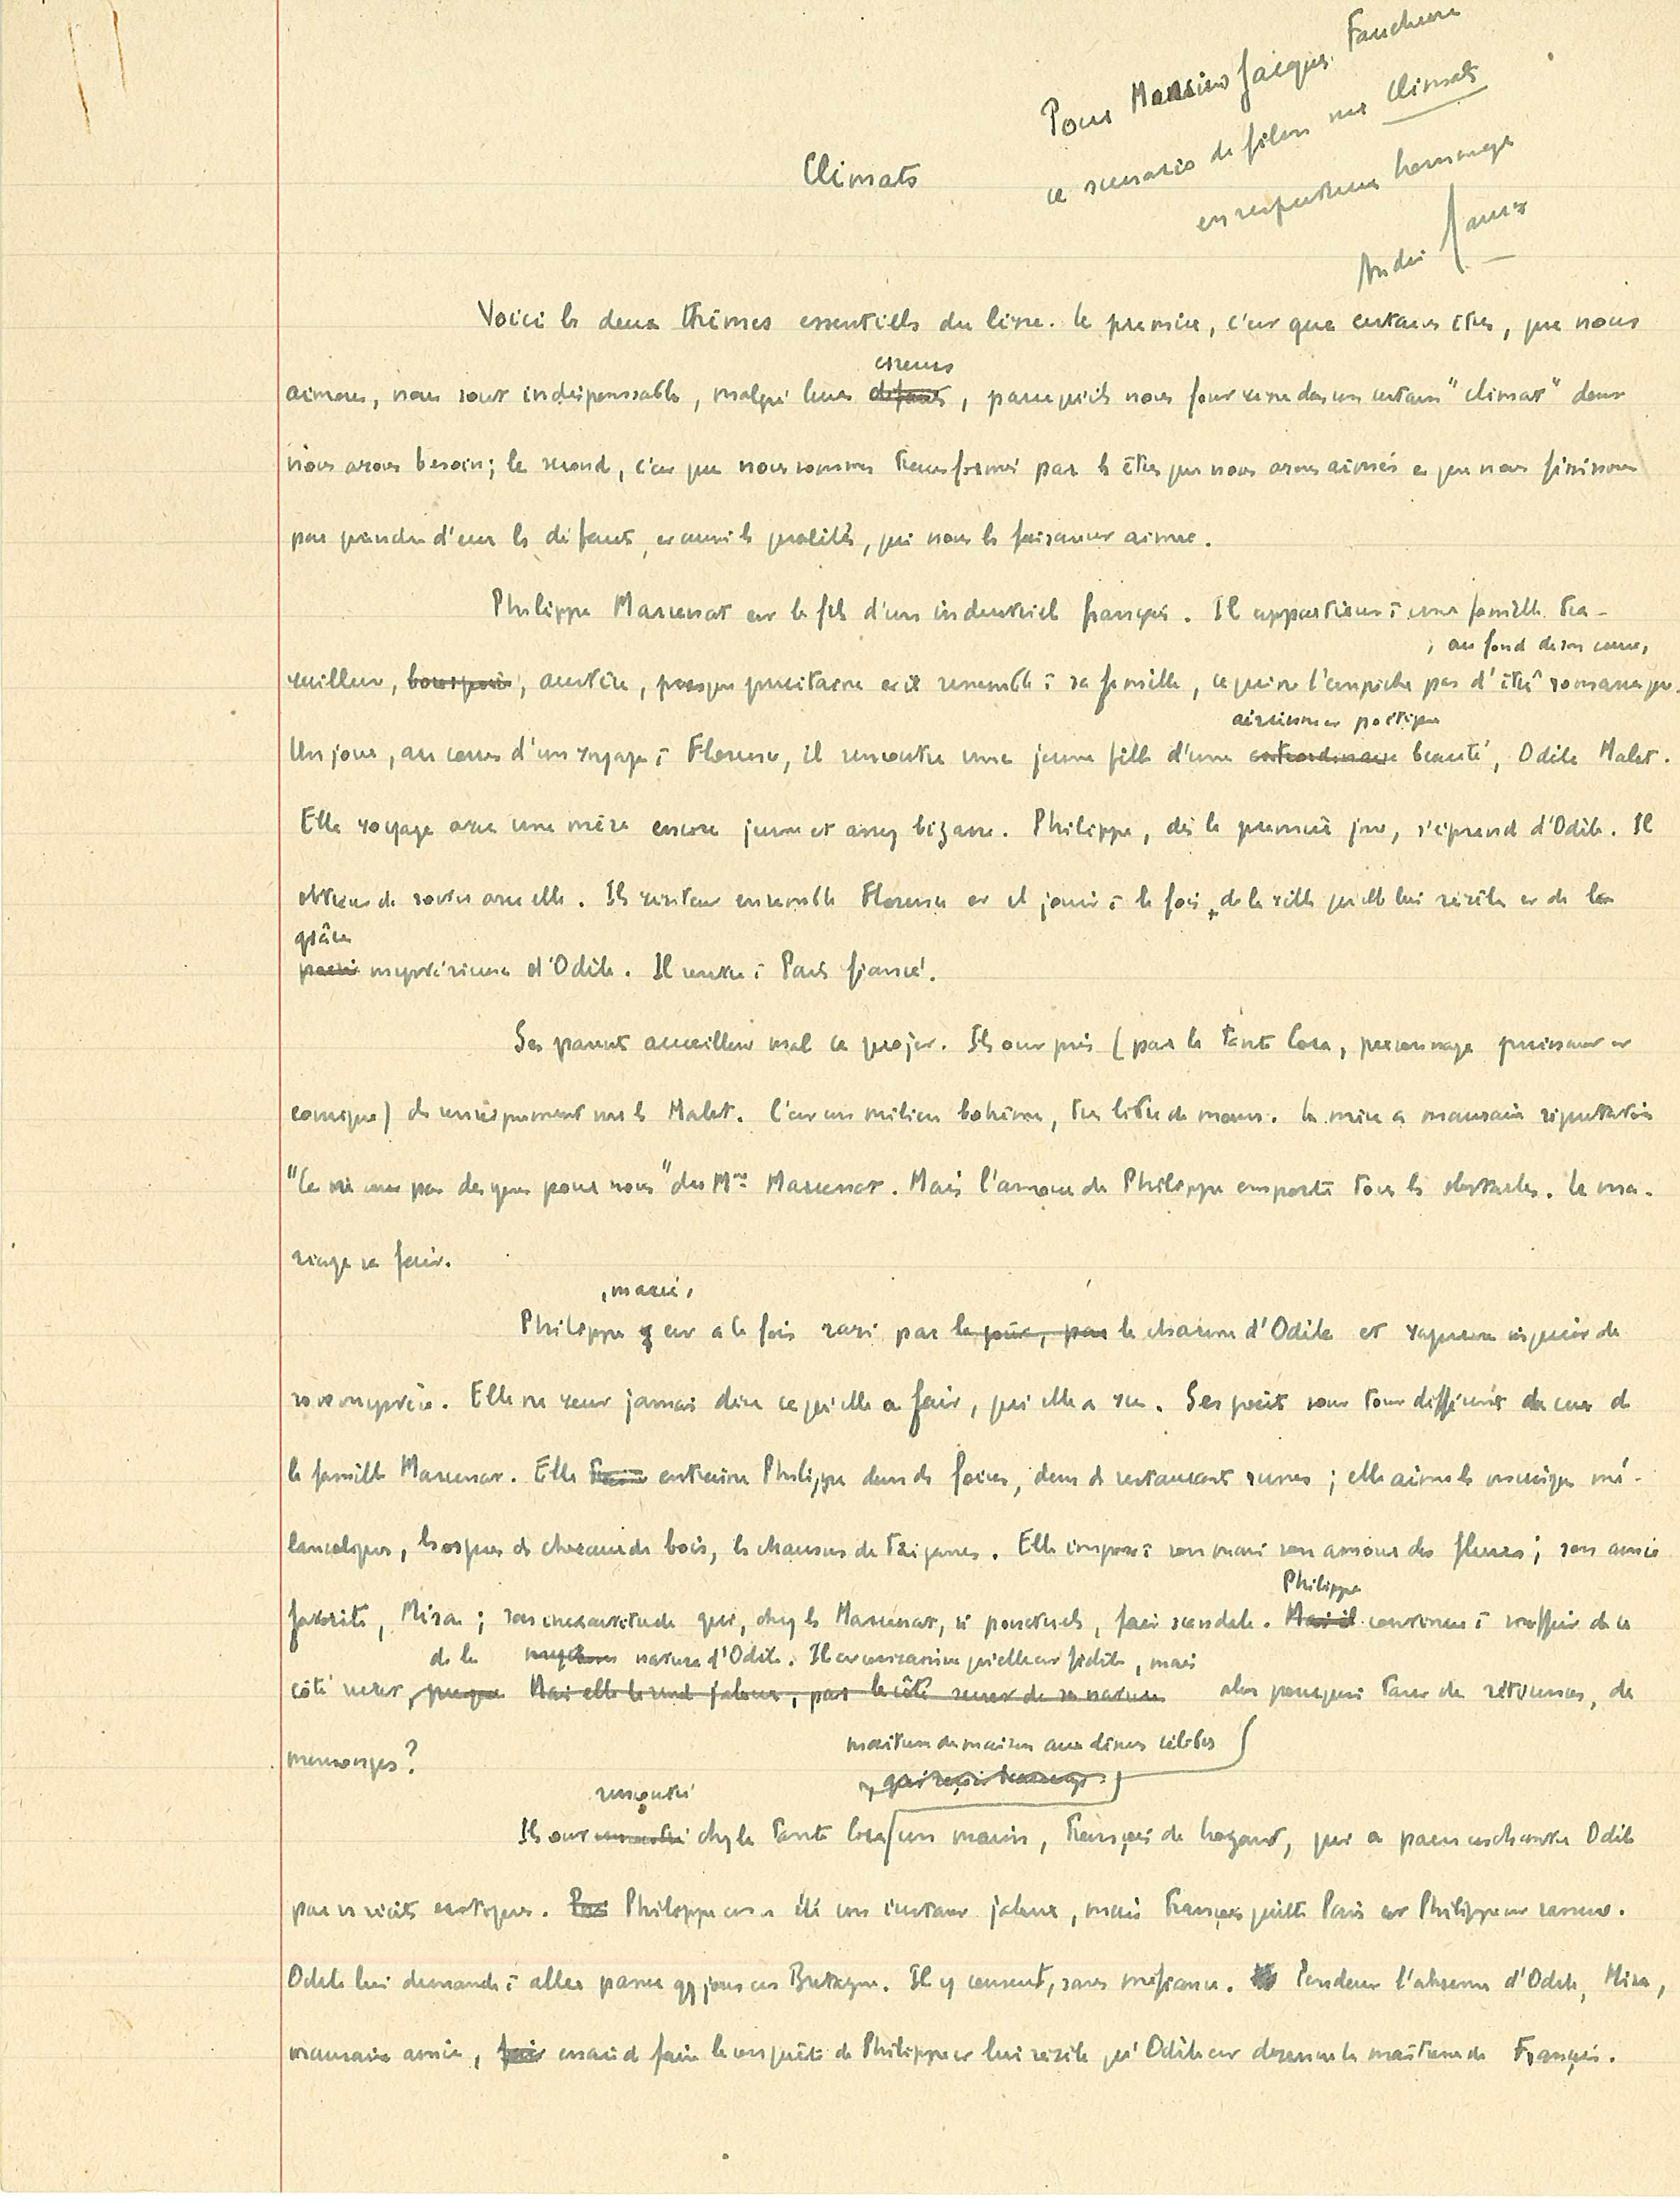 Pour Monsieur Jacques
ce scenario de film sur Climats
en respectueux hommage
André
Climats
Voici les deux thèmes essentiels du livre. Le premier, c'est que certains êtres, que nous
erreurs
aimons, nous sont indispensables, malgré leurs défauts, parce qu'ils nous font vivre dans un certain "climat" dont
nous avons besoin; le second, c'est que nous sommes transformés par les êtres que nous avons aimés et que nous finissons
par prendre d'eux les défauts, et aussi les qualités, qui nous les faisaient aimer.
Philippe Marcenat est le fils d'un industriel français. Il appartient à une famille tra-
, au fond de son cœur,
vailleuse, bourgeoise, austère, presque puritaine et il ressemble à sa famille, ce qui ne l'empêche pas d'être romanesque.
aérienne et poétique
Un jour, au cours d'un voyage à Florence, il rencontre une jeune fille d'une extraordinaire beauté, Odile Malet.
Elle voyage avec une mère encore jeune et assez bizarre. Philippe, dès le premier jour, s'éprend d'Odile. Il
obtient de sortir avec elle. Ils visitent ensemble Florence et il jouit à la fois de la ville qu'elle lui révèle et de la
grâce
mystérieuse d'Odile. Il rentre à Paris fiancé.
Ses parents accueillent mal ce projet. Ils ont pris (par la tante Cora, personnage puissant et
comique) des renseignements sur les Malet. C'est un milieu bohème, très libre de mœurs. La mère a mauvaise réputation
"Ce ne sont pas des gens pour nous" dit Mme Marcenat. Mais l'amour de Philippe emporte tous les obstacles. Le ma-
riage se fait.
, marié,
Philippe est à la fois ravi par le charme d'Odile et vaguement inquiet de
son mystère. Elle ne veut jamais dire ce qu'elle a fait, qui elle a vu. Ses goûts sont tout différents de ceux de
la famille Marcenat. Elle entraîne Philippe dans des foires, dans des restaurants russes; elle aime les musiques mé-
lancoliques, les orgues de chevaux de bois, les chansons de tziganes. Elle impose à son mari son amour des fleurs; son amie
Philippe
favorite, Misa; son inexactitude qui, chez les Marcenat, si ponctuels, fait scandale. Mais il continue à souffrir de ce
de la nature d'Odile. Il est convaincu qu'elle est fidèle, mais
côté secret, Mais elle le rend jaloux, par le côté secret de sa nature alors pourquoi tant de réticences, de
mensonges?
maîtresse de maison aux dîners célèbres
rencontré
Ils ont rencontré chez la tante Cora un marin, François de Crozant, qui a paru enchanter Odile
par ses récits exotiques. Philippe en a été un instant jaloux, mais François quitte Paris et Philippe est rassuré.
Odile lui demande à aller passer qq jours en Bretagne. Il y consent, sans méfiance. Pendant l'absence d'Odile, Misa,
mauvaise amie, essaie de faire la conquête de Philippe et lui révèle qu'Odile est devenue la maîtresse de François.